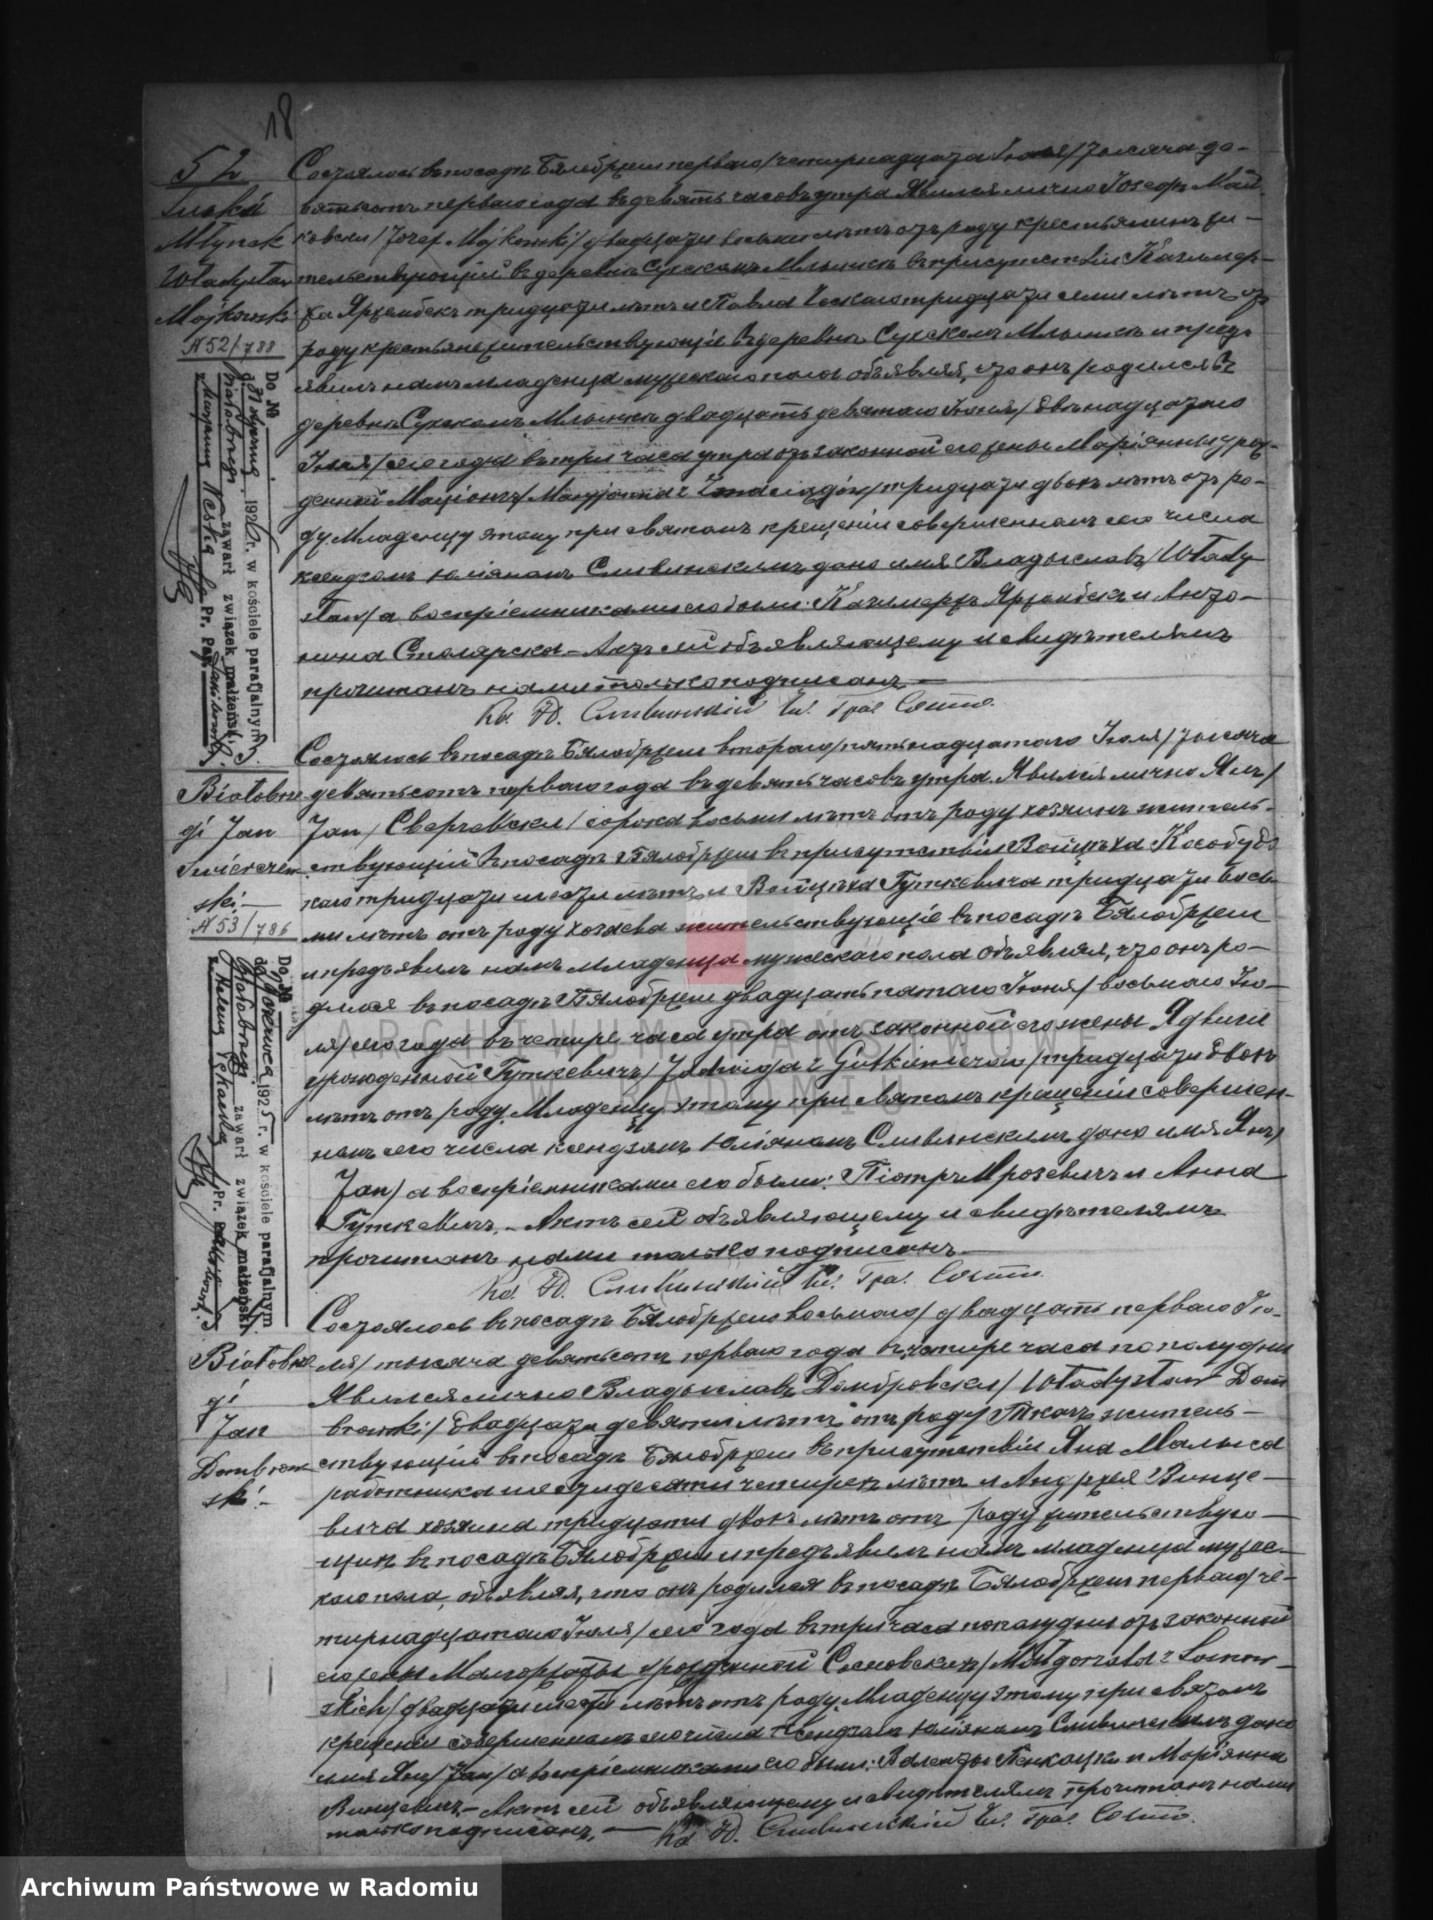 18
52
Suski
Młynek
Władysław
Majkowski
N 52/788
Состоялось въ посадѣ Бялобржеги перваго/четырнадцатаго Іюля/тысяча де-
вятьсотъ перваго года въ девять часовъ утра. Явился лично Іосефъ Май-
ковски/Józef Majkowski/двадцати восьми лѣтъ отъ роду крестьянинъ жи-
тельствующій въ деревнѣ Сухскомъ Млынкѣ въ присутствіи Казимер-
жа Яржембекъ тридцати лѣтъ и Павла тридцати семи лѣтъ отъ
роду крестьянъ жительствующіе въ деревнѣ Сухскомъ Млынкѣ и предъ
явилъ намъ младенца мужескаго пола объявляя, что онъ родился въ
деревнѣ Сухскомъ Млынкѣ двадцать девятаго Іюня/двѣнадцатаго
Іюля/сего года въ три часа утра отъ законной его жены Маріянны урож-
денной тридцати двохъ лѣтъ отъ ро-
ду. Младенцу этому при святомъ крещеніи совершенномъ сего числа
ксендзомъ Юліяномъ Сливинскимъ дано имя Владыславъ/Włady
sław/а воспріемниками его были: Казимержъ Яржембекъ и Анто-
нина Столярска. Актъ сей объявляющему и свидѣтелямъ
прочитанъ нами только подписанъ.
Кс. Ю. Сливинскій Чи. Гра. Состо.
Do №
d. 31 1926 r. w kościele parafjalnym
Białobrzegi zawarł związek małżeński
z Marjanną Pr. Par.
Białobrze
gi Jan
Świerczew
ski.
N 53/786
Состоялось въ посадѣ Бялобржеги втораго/пятьнадцатаго Іюля/тысяча
девятьсотъ перваго года въ девять часовъ утра. Явился лично Янъ/
Jan/Сверчевски/сорока восьми лѣтъ отъ роду хозяинъ житель-
ствующій въ посадѣ Бялобржеги въ присутствіи Войцѣха Кособудз
каго тридцати шести лѣтъ и Войцѣха Гуткевича тридцати вось-
ми лѣтъ отъ роду хозяева жительствующіе въ посадѣ Бялобржеги
и предъявилъ намъ младенца мужескаго пола объявляя, что онъ ро-
дился въ посадѣ Бялобржеги двадцать пятаго Іюня/восьмаго Ію-
ля/сего года въ четыре часа утра отъ законной его жены Ядвиги
урожденной Гуткевичъ/Jadwiga z Gutkiewiczów/тридцати двохъ
лѣтъ отъ роду. Младенцу этому при святомъ крещеніи совершен-
номъ сего числа ксендзомъ Юліяномъ Сливинскимъ дано имя Янъ/
Jan/а воспріемниками его были: Піотръ Мрозевичъ и Анна
Гуткевичъ. Актъ сей объявляющему и свидѣтелямъ
прочитанъ нами только подписанъ.
Кс. Ю. Сливинскій Чи. Гра. Состо.
Do №
d. 7 Czerwca 1925 r. w kościele parafjalnym
Białobrzegi zawarł związek małżeński
z Heleną Pr. Par.
Białobrze
gi
Jan
Dombrow
ski.
Состоялось въ посадѣ Бялобржеги восьмаго/двадцать перваго Ію-
ля/тысяча девятьсотъ перваго года въ четыре часа по полудни
Явился лично Владыславъ Домбровски/Władysław Dom
browski/двадцати девяти лѣтъ отъ роду Ткачъ житель-
ствующій въ посадѣ Бялобржеги въ присутствіи Яна Малыса
работника шестидесяти четырехъ лѣтъ и Андржея Винце-
вича хозяина тридцати двохъ лѣтъ отъ роду жительствую-
щихъ въ посадѣ Бялобржеги и предъявилъ намъ младенца мужес-
каго пола, объявляя, что онъ родился въ посадѣ Бялобржеги перваго/че-
тырнадцатаго Іюля/сего года въ три часа пополудни отъ законной
его жены Малгоржаты урожденной Сосновскихъ/Małgorzata z Sosnow-
skich/двадцати шести лѣтъ отъ роду. Младенцу этому при святомъ
крещеніи совершенномъ сего числа Ксендзомъ Юліяномъ Сливинскимъ дано
имя Янъ/Jan/а воспріемниками его были: Валенты и Маріянна
Винцевичъ. Актъ сей объявляющему и свидѣтелямъ прочитанъ нами
только подписанъ.
Кс. Ю. Сливинскій Чи. Гра. Состо.
ARCHIWUM PAŃSTWOWE
W RADOMIU
Archiwum Państwowe w Radomiu